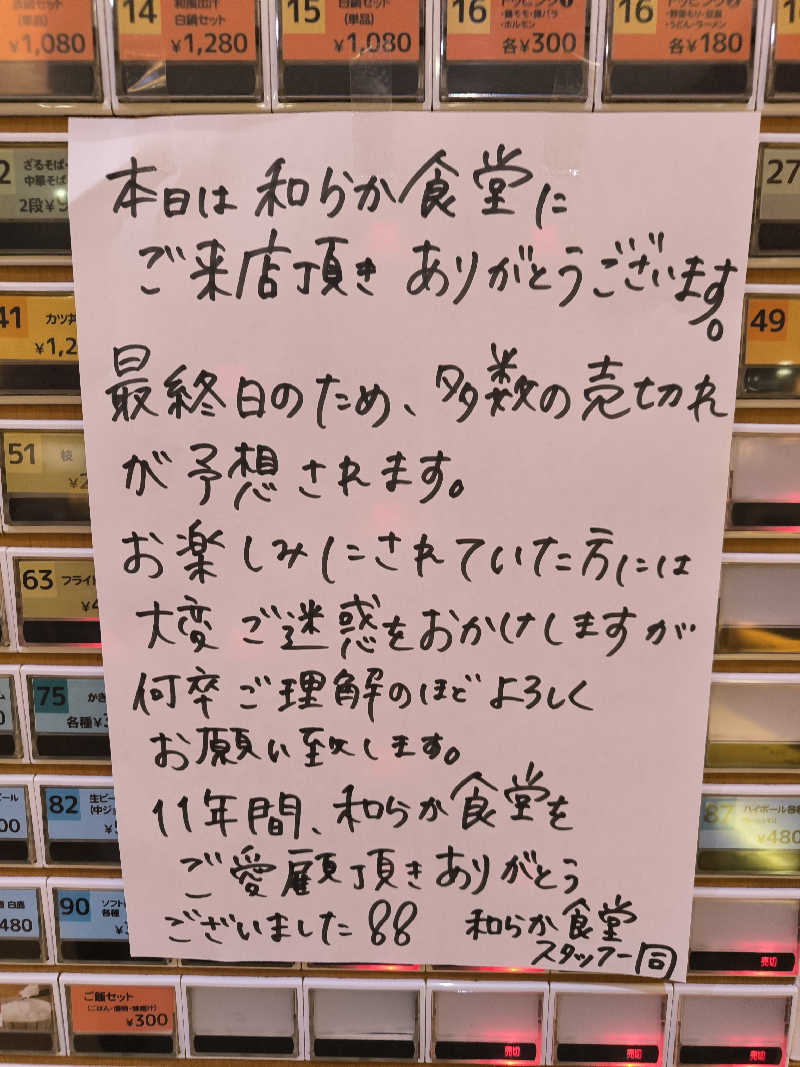 (単品)
¥1,080
14
和風出汁
白鍋セット
¥1,280
15
白鍋セット
(単品)
¥1,080
16
・ホルモン
各¥300
16
・うどん・ラーメン
各¥180
ざるそば
中華そば
2段
27
41
カツ丼
49
51
枝
63
フライ
75
かき
各種¥
82
生ビー
(中ジ
87
ハイボール各種
¥480
90
ソフト
各種
480
本日は和らか食堂に
ご来店頂きありがとうございます。
最終日のため、多数の売切れ
が予想されます。
お楽しみにされていた方には
大変ご迷惑をおかけしますが
何卒ご理解のほどよろしく
お願い致します。
11年間、和らか食堂を
ご愛顧頂きありがとう
ございました88
和らか食堂
スタッフ一同
売切
ご飯セット
¥300
売切
売切
売切